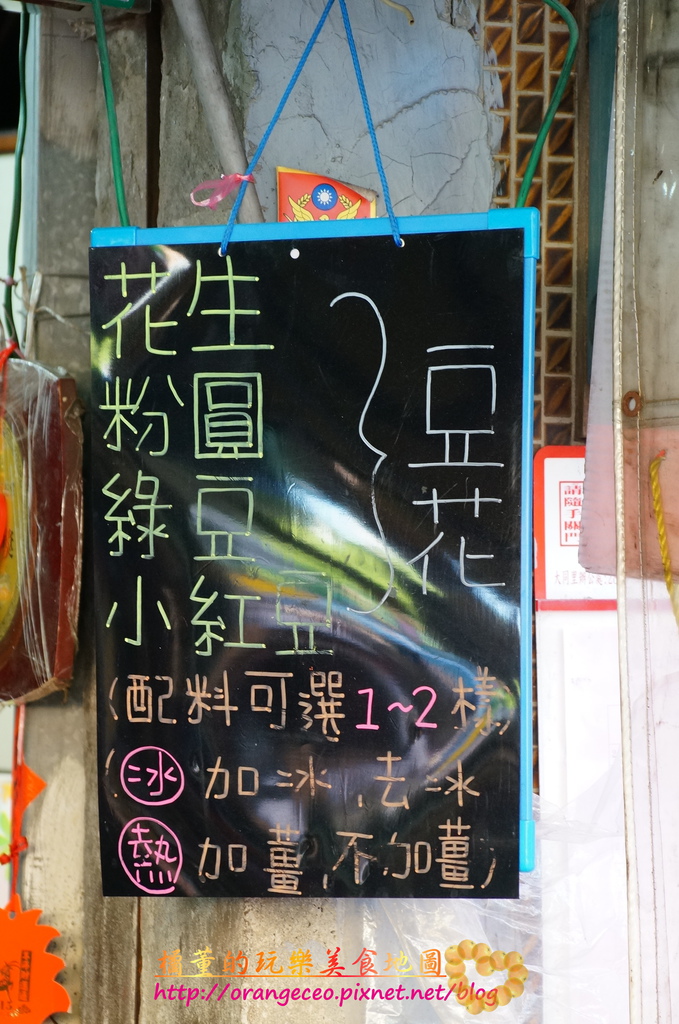 花生
粉圓
綠豆
小紅豆
豆花
(配料可選1~2樣)
(冰 加冰、去冰
熱 加薑、不加薑)
請隨手關門
橘董的玩樂美食地圖
http://orangeceo.pixnet.net/blog